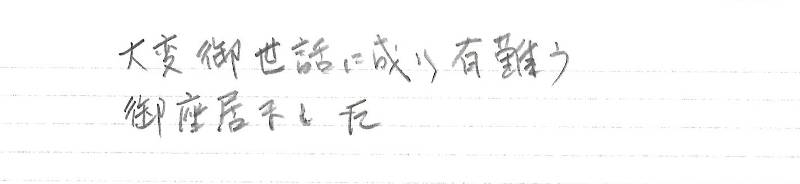 大変御世話に成り有難う
御座居ました